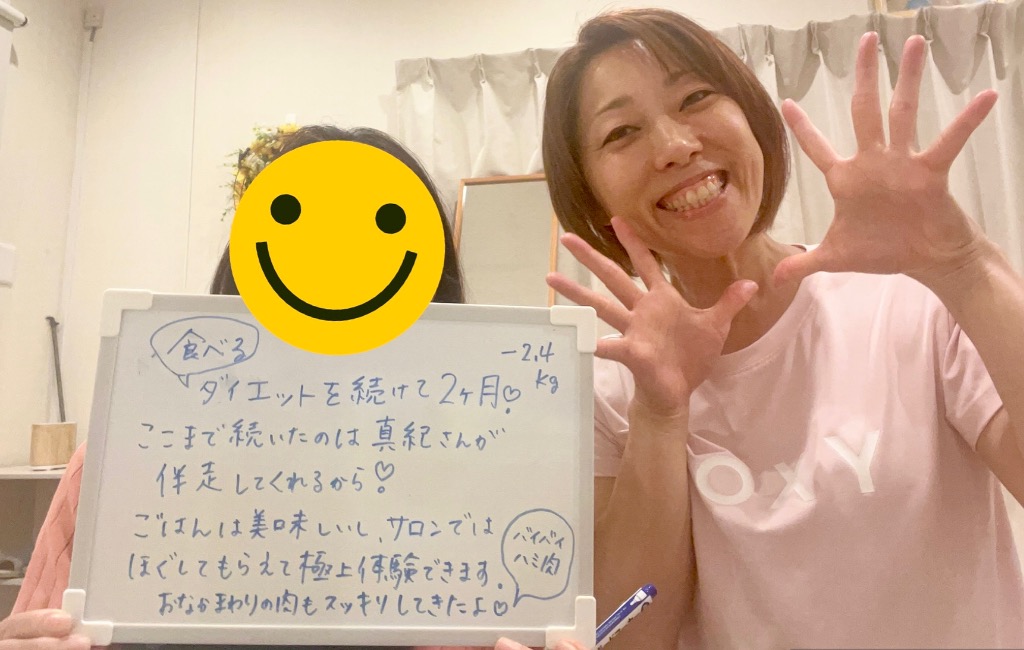 食べる
ダイエットを続けて2ヶ月♡
-2.4
kg
ここまで続いたのは真紀さんが
伴走してくれるから♡
ごはんは美味しいし、サロンでは
ほぐしてもらえて極上体験できます。
おなかまわりの肉もスッキリしてきたよ♡
バイバイ
ハミ肉
OXY